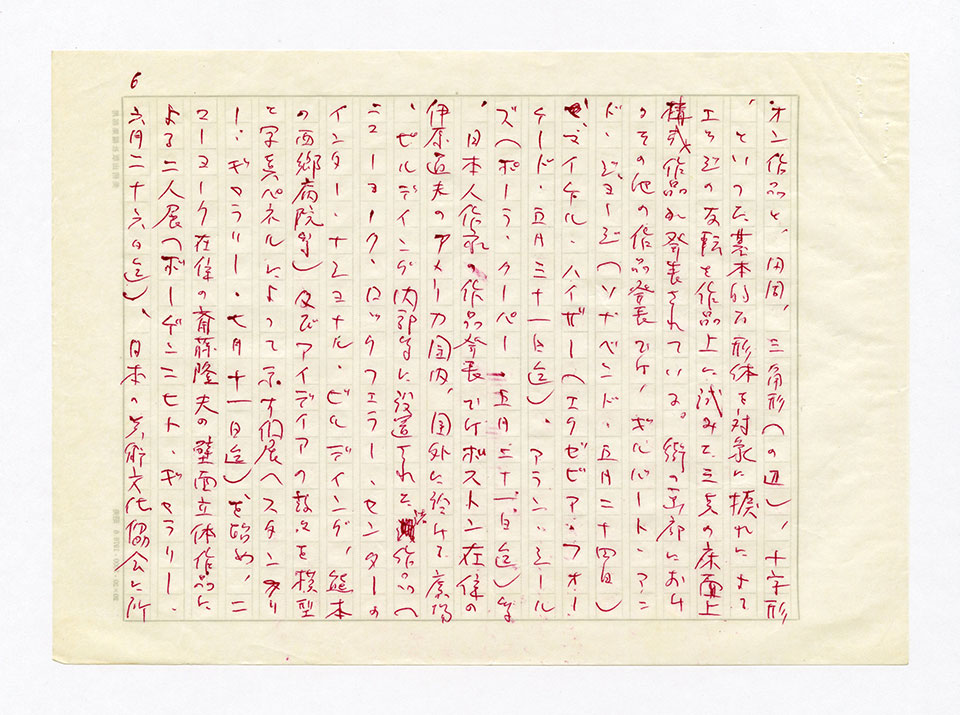 6
オン作品と、円周、三角形(の辺)、十字形
、といった基本的な形体を対象に捩れによって
エッジの反転を作品上に試みて三点の床面上
構成作品が発表されている。街の下部におけ
るその他の作品発表では、ギルバート・アン
ド・ジョージ(ソナベンド・五月二十四日)
、マイケル・ハイザー(エクゼビア・フォー
ケード・五月三十一日迄)、アラン・シール
ズ(ポーラ・クーパー・五月三十一日迄)等
、日本人作家の作品発表ではボストン在住の
伊原通夫のアメリカ国内、国外に於ける広場
、ビルディング内部等に設置された作品(
ニューヨーク・ロックフェラー・センターの
インター・ナショナル・ビルディング、熊本
の西郷病院等)及びアイディアの数々を模型
と写真パネルによって示す個展(スタンフリ
ー・ギャラリー・七月十一日迄)を始め、ニ
ューヨーク在住の斎藤隆夫の壁面立体作品に
よる二人展(ボーゲンニヒト・ギャラリー・
六月二十六日迄)、日本の美術文化協会に所